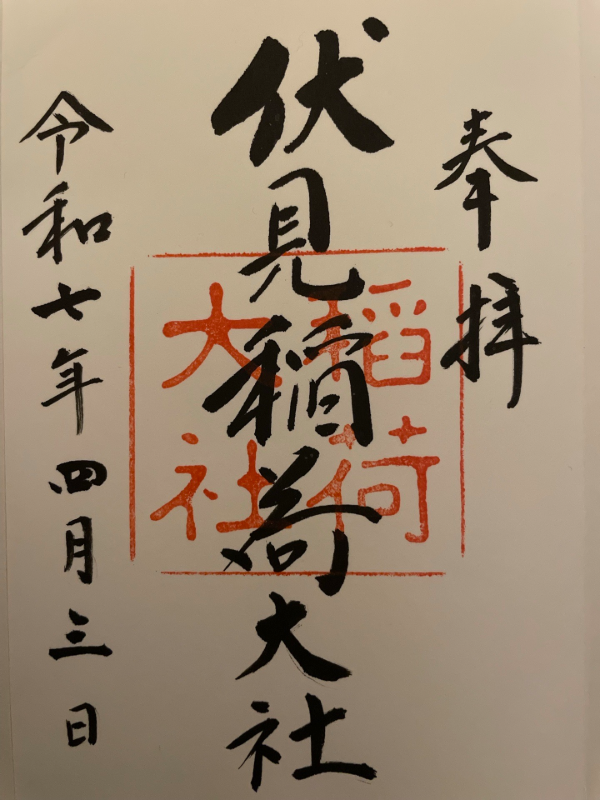 奉拝
伏見稲荷大社
稲荷
大社
令和七年四月三日